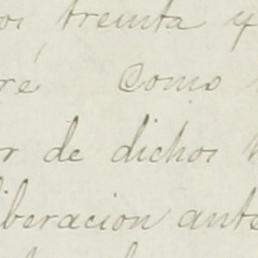 os, treinta y
ré Como
r de dichos
liberacion ante